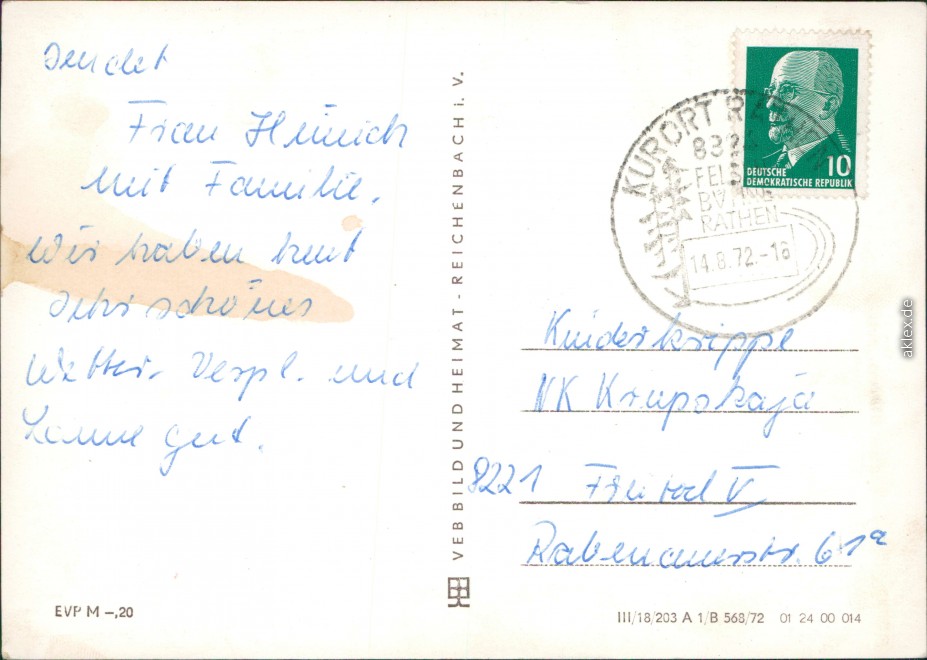 sendet
Frau Heinich
mit Familie.
Wir haben heut
sehr schönes
Wetter. Verpl. und
Laune gut.
EVP M –,20
VEB BILD UND HEIMAT - REICHENBACH i. V.
KURORT RATHEN
FELSEN
BÜHNE
RATHEN
14.8.72.-18
10
DEUTSCHE
DEMOKRATISCHE REPUBLIK
Kinderkrippe
NK Krupskaja
8221 Freital V
Rabenauerstr. 61a
III/18/203 A 1/B 568/72 01 24 00 014
aklex.de